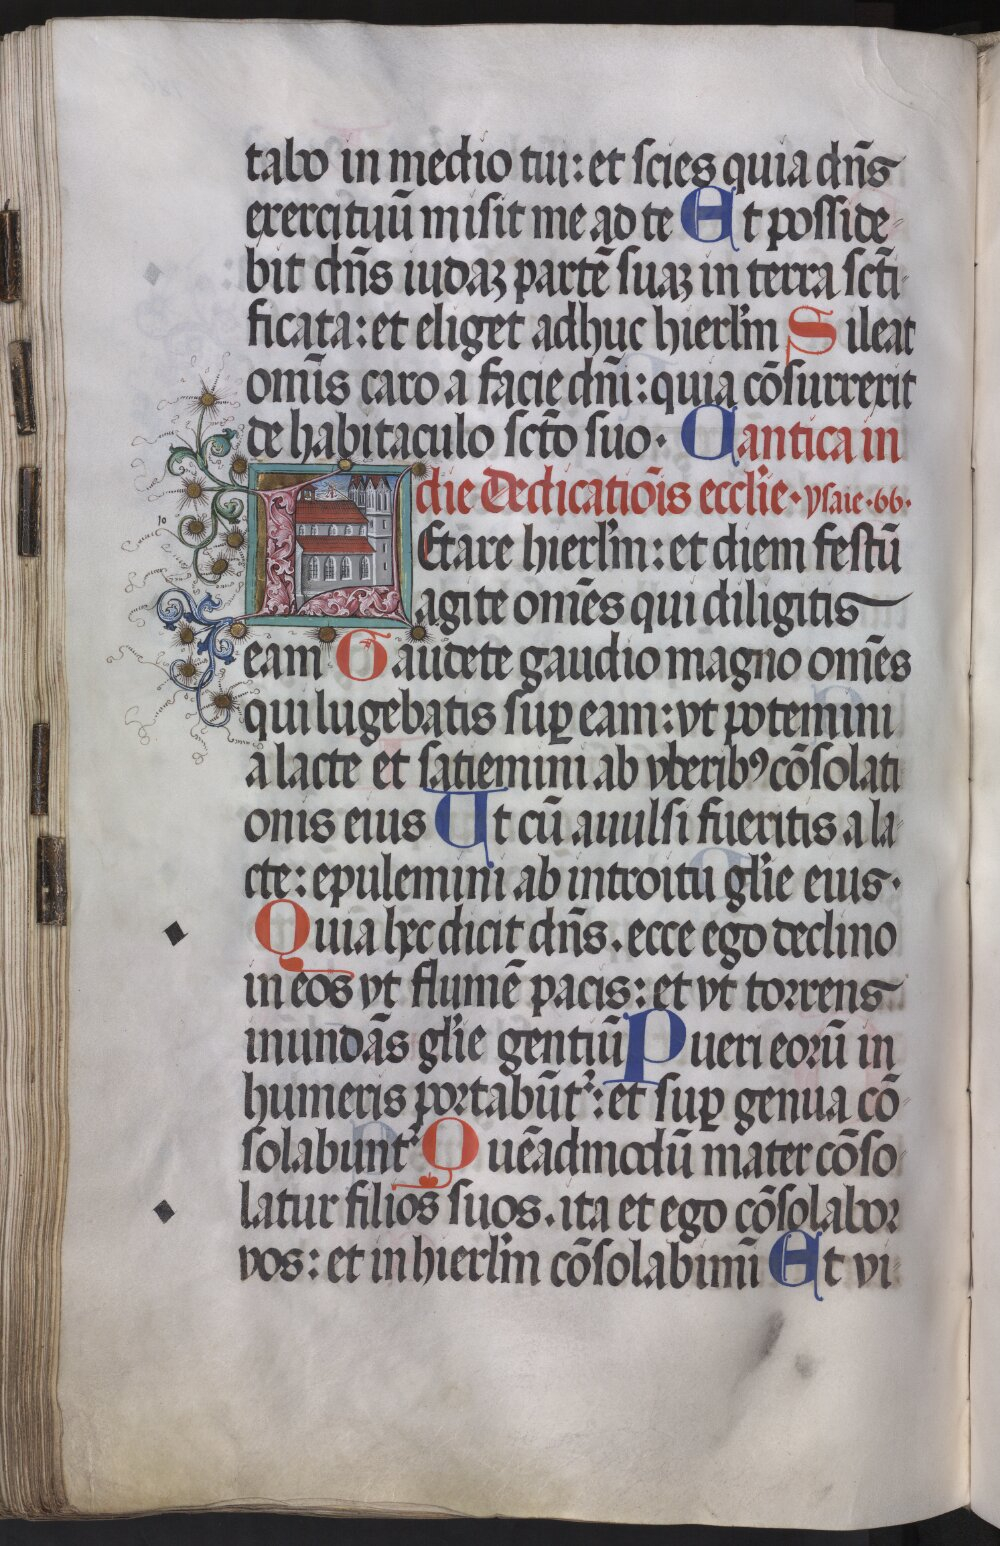 tabo in medio tui: et scies quia dn̄s
exercituū misit me ad te Et posside-
bit dn̄s iudaꝫ partē suaꝫ in terra scti-
ficata: et eliget adhuc hierlm̄ Sileat
om̄is caro a facie dn̄i: quia cōsurrexit
de habitaculo sctō suo· Cantica in
die Dedicatiōis eccli̅e· ysaie ·66·
10
LEtare hierlm̄: et diem festū
agite om̄es qui diligitis
eam Gaudete gaudio magno om̄es
qui lugebatis suꝑ eam: vt potemini
a lacte et satiemini ab vberibꝰ cōsolati
onis eius Ut cū auulsi fueritis a la-
cte: epulemini ab introitu gli̅e eius·
Quia hęc dicit dn̄s. ecce ego declino
in eos vt flumē pacis: et vt torrens
inundās gli̅e gentiū Pueri eorū in
humeris portabūt᷑: et suꝑ genua cō
solabunt᷑ Quēadmodū mater cōso-
latur filios suos. ita et ego cōsolabor
vos: et in hierlm̄ cōsolabimī Et vi-